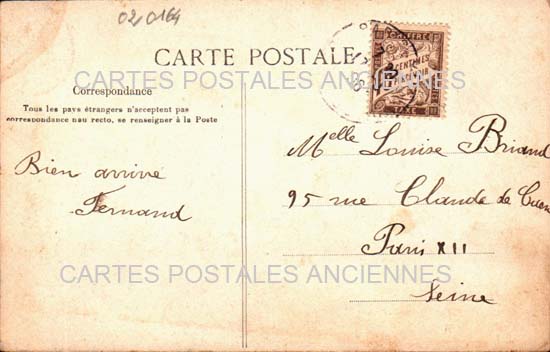 02/0164
CARTE POSTALE
CARTES POSTALES ANCIENNES
Correspondance
Tous les pays étrangers n'acceptent pas
correspondance au recto, se renseigner à la Poste
Bien arrivé
Fernand
CHIFFRE
CENTIMES
À PERCEVOIR
TAXE
Melle Louise Briand
95 rue Claude de
Paris XII
Seine
CARTES POSTALES ANCIENNES